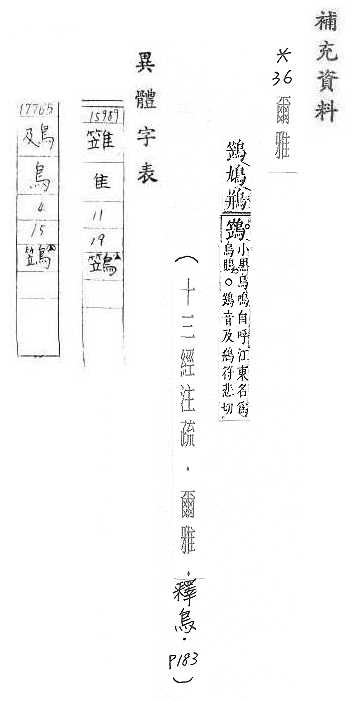 補充資料
*36 爾雅
鷑鳩鵧鷑
小黑鳥鳴自呼江東名爲
烏鴔○鷑音及鵧符悲切
(十三經注疏．爾雅．釋鳥．P183)
異體字表
15989
隹
11
19
鷑
17765
鳥
4
15
鷑